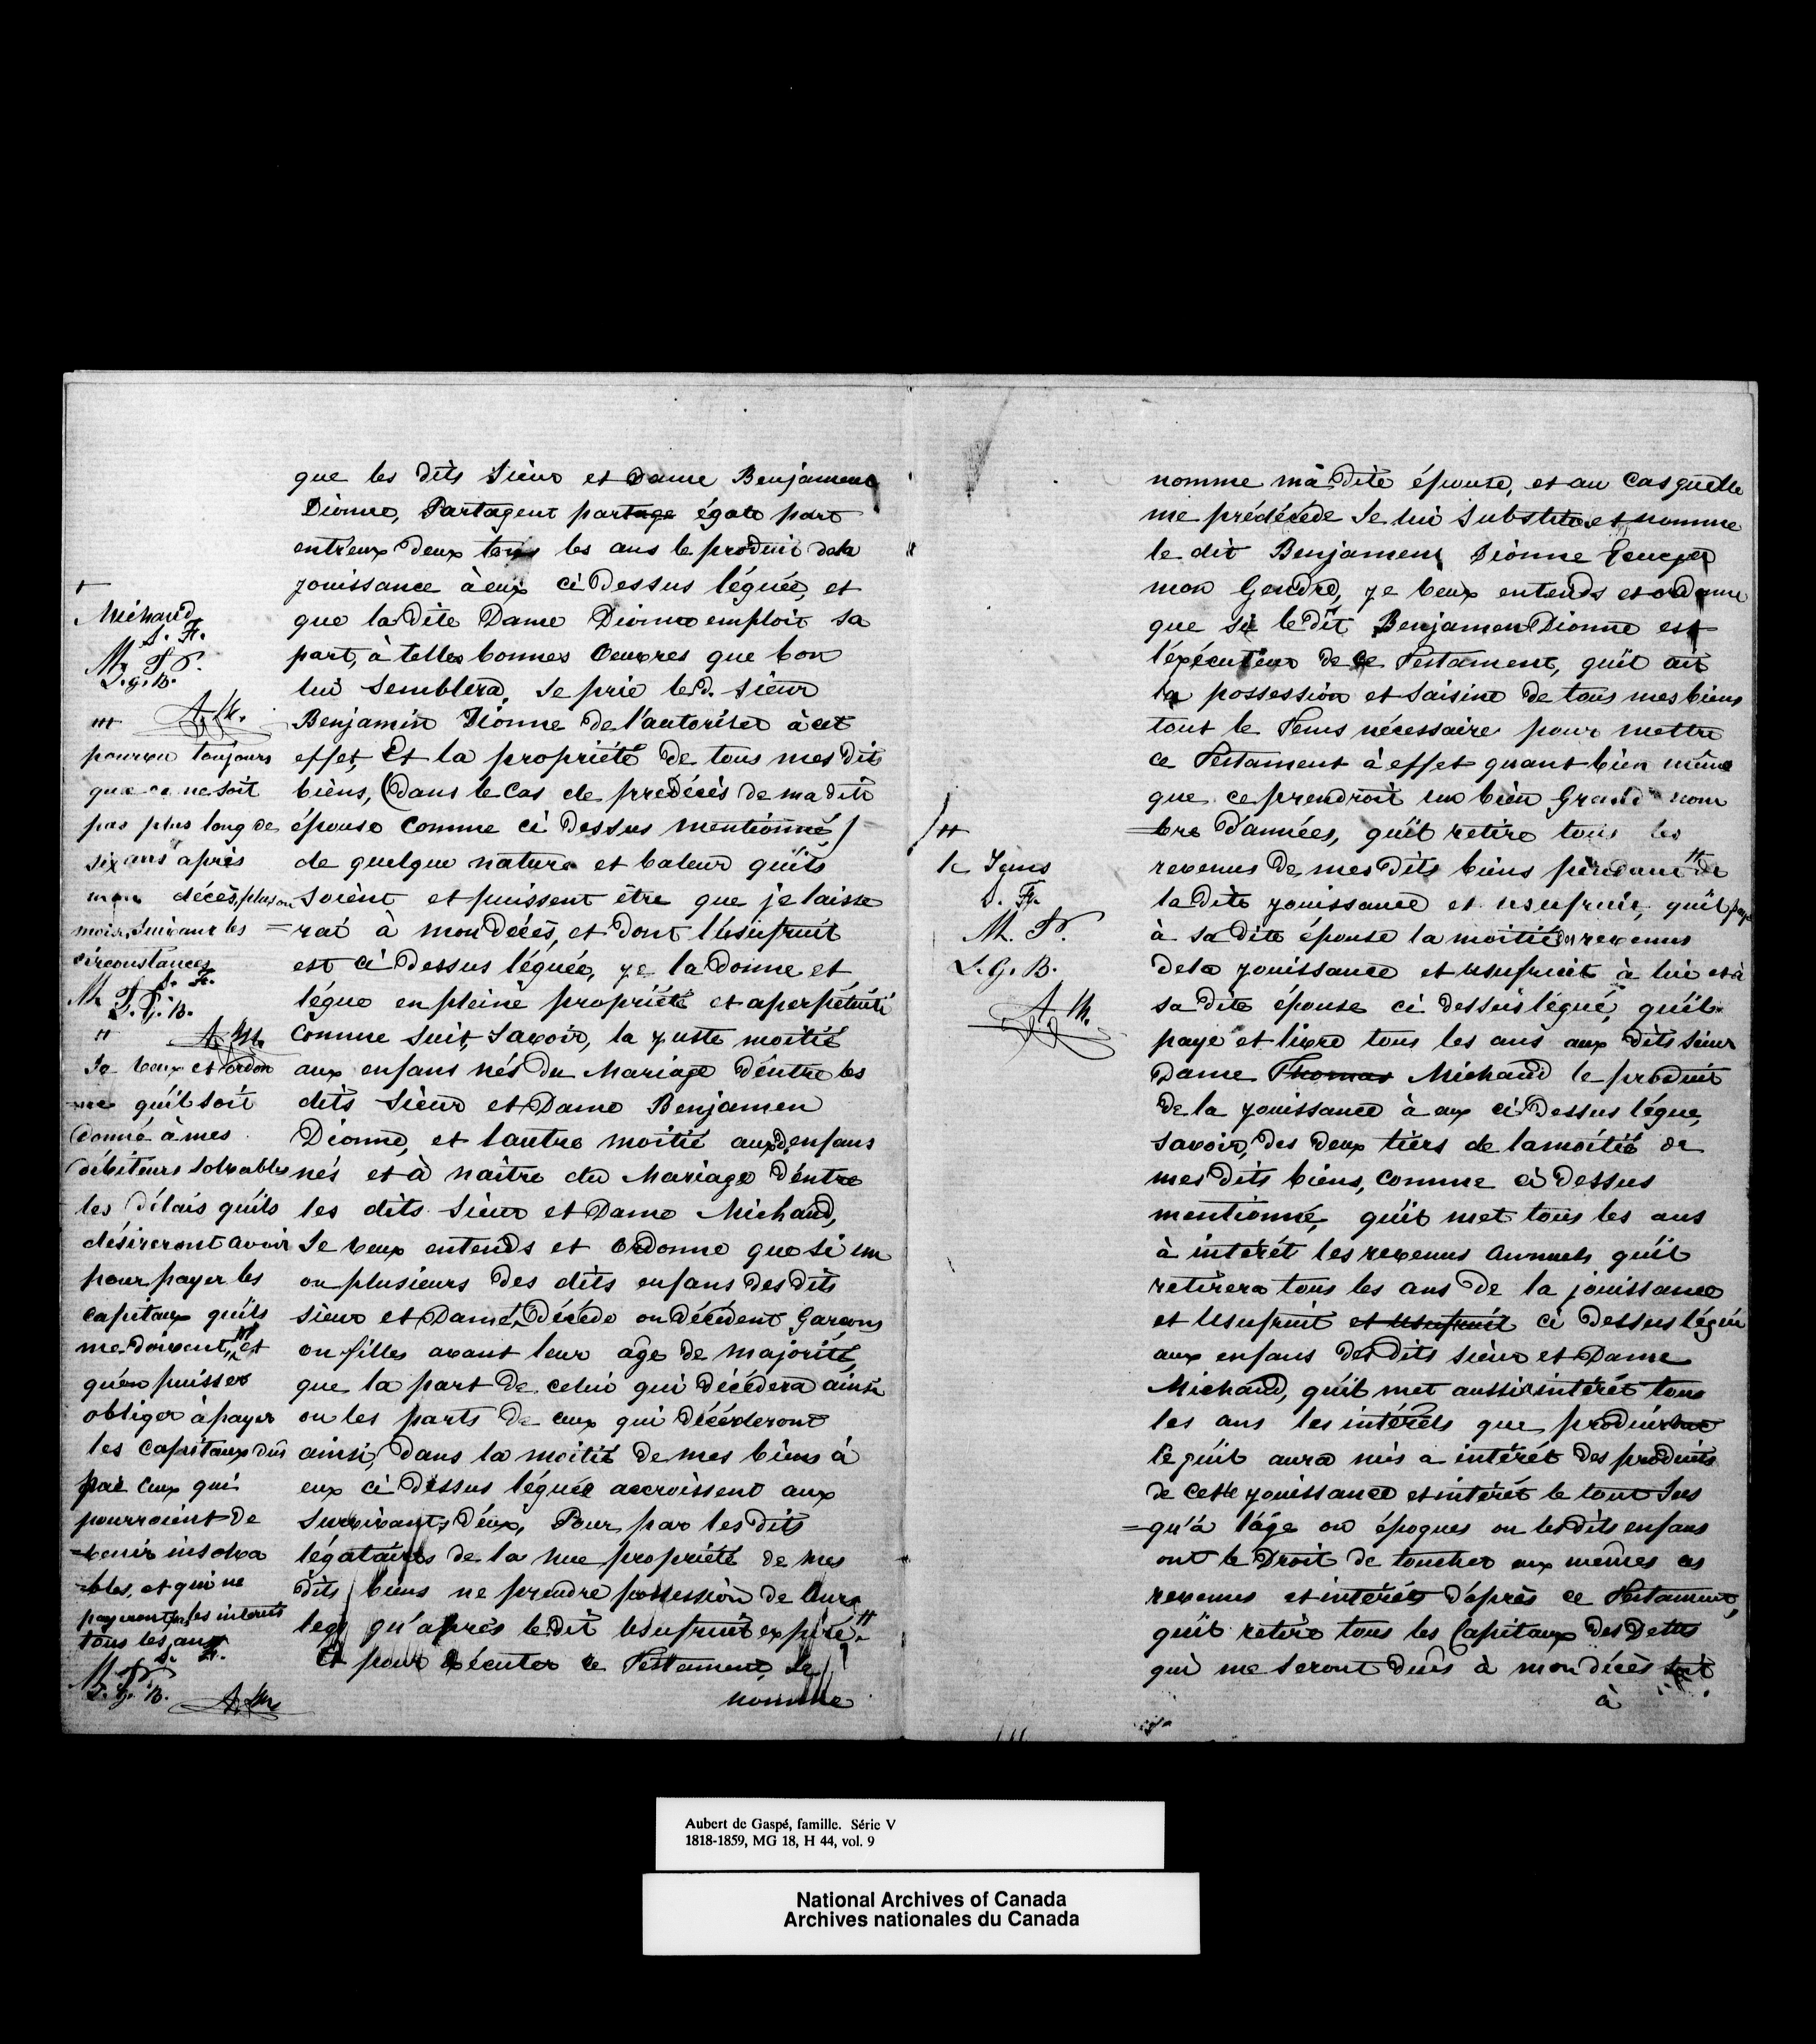 que les dits Sieur et Dame Benjamen
Dionne, Partagent partage égale part
entr'eux deux tous les ans le produit de la
jouissance à eux ci Dessus léguée, et
que la dite Dame Dionne emploit sa
part, à telles bonnes Oeuvres que bon
lui semblera, Je prie led. sieur
Benjamin Dionne de l'autoriser à cet
effet, Et la propriété de tous mes dits
biens, (Dans le Cas de predécés de ma dite
épouse Comme ci Dessus mentionné)
de quelque nature et valeur qu'ils
soient et puissent être que je laisse
=rai à mon Décès, et Dont l'usufruit
est ci Dessus léguée, je la Donne et
légue en pleine propriété et a perpétuité
Comme suit, Savoir, la juste moitié
aux enfans nés du Mariage D'entre les
dits Sieur et Dame Benjamen
Dionne, et l'autre moitié aux d. enfans
nés et à naitre du Mariage D'entre
les dits Sieur et Dame Michaud,
Je veux entends et Ordonne que si un
ou plusieurs Des dits enfans Des Dits
sieur et Dame, Décéde ou Décédent Garçons
ou filles avant leur âge de majorité,
que la part De celui qui Décédera ainsi
ou les parts De ceux qui Décéderont
ainsi, Dans la moitié De mes biens à
eux ci Dessus léguée accroissent aux
Survivants D'eux, Pour par les Dits
légataires de la nue propriété de mes
dits biens ne prendre possession De leurs
legs qu'après le Dit Usufruit expiré #
Et pour Exécuter ce Testament, Je
nomme
+
Michaud
S. Ft.
M. T. P.
L. G. B.
A. M.
###
pourvu toujours
que ce ne soit
pas plus long de
six ans après
mon décès, plus ou
moins, suivant les
circonstances
S. Ft.
M. T. P.
L. G. B.
A. M.
#
Je veux et ordon
=ne qu'il soit
Donné à mes
débiteurs solvables
les Délais qu'ils
désireront avoir
pour payer les
capitaux qu'ils
me Doivent, ### et
qu'on puisse
obliger à payer
les Capitaux Dus
par ceux qui
pourroient De
=venir insolva
=bles, et qui ne
payeront pas les interets
tous les ans
S. Ft.
M. T. P.
L. G. B.
A. M.
nomme ma Dite épouse, et au Cas qu'elle
me prédécéde Je lui Substitue et nomme
le dit Benjamen Dionne Ecuyer
mon Gendre, je veux entends et ordonne
que si le dit Benjamen Dionne est
l'éxécuteur de ce Testament, qu'il ait
la possession et Saisine de tous mes biens
tout le Tems nécessaire pour mettre
ce Testament à effet quant bien même
que ce prendroit un bien Grand nom
=bre D'années, qu'il retire tous les
revenus De mes Dits biens pendant # de
la Dite jouissance et usufruit, qu'il paye
à sa dite épouse la moitié des revenus
De la jouissance et usufruit à lui et à
sa Dite épouse ci Dessus légué, qu'il
paye et livre tous les ans aux Dits sieur
Dame Thomas Michaud le produit
De la jouissance à aux ci Dessus légue,
savoir, Des Deux tiers de la moitié De
mes Dits biens, Comme ci Dessus
mentionné, qu'il met tous les ans
à intérêt les revenus Annuels qu'il
retirera tous les ans De la jouissance
et Usufruit et Usufruit ci Dessus légué
aux enfans Des Dits sieur et Dame
Michaud, qu'il met aussi a intérêt tous
les ans les intérêts que produira
ce qu'il aura mis a intérêt Des produits
de cette jouissance et intérêt le tout Jus
=qu'à l'âge ou époques ou les Dits enfans
ont le Droit De toucher eux mêmes ces
revenus et intérêts D'après ce Testament,
qu'il retire tous les Capitaux Des Dettes
qui me seront Dues à mon décès soit
à
/#
le Tems
S. Ft.
M. P.
L. G. B.
A. M.
Aubert de Gaspé, famille. Série V
1818-1859, MG 18, H 44, vol. 9
National Archives of Canada
Archives nationales du Canada